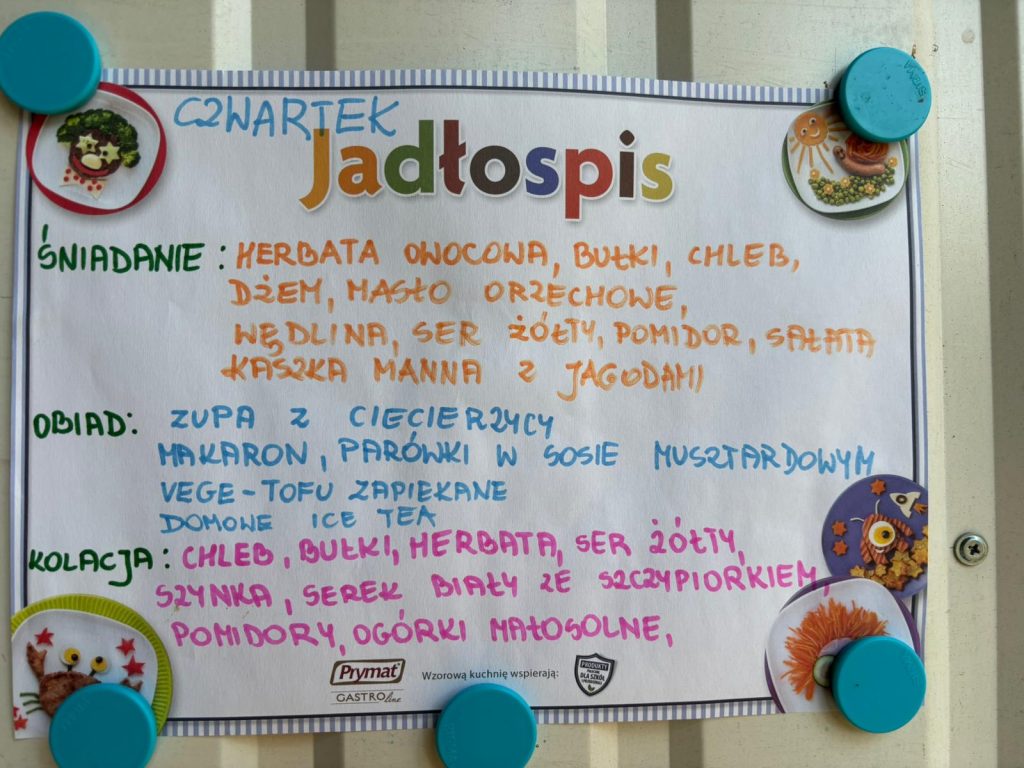 CZWARTEK
Jadłospis
ŚNIADANIE : HERBATA OWOCOWA, BUŁKI, CHLEB,
DŻEM, MASŁO ORZECHOWE,
WĘDLINA, SER ŻÓŁTY, POMIDOR, SAŁATA
KASZKA MANNA Z JAGODAMI
OBIAD: ZUPA Z CIECIERZYCY
MAKARON, PARÓWKI W SOSIE MUSZTARDOWYM
VEGE-TOFU ZAPIEKANE
DOMOWE ICE TEA
KOLACJA : CHLEB, BUŁKI, HERBATA, SER ŻÓŁTY,
SZYNKA, SEREK BIAŁY ZE SZCZYPIORKIEM,
POMIDORY, OGÓRKI MAŁOSOLNE,
Prymat
GASTRO line
Wzorową kuchnię wspierają:
PRODUKTY
DLA SZKÓŁ